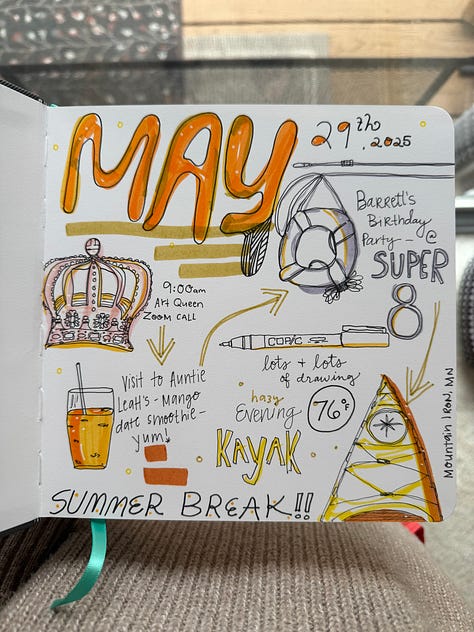 MAY
29th, 2025
Barrett's
Birthday
Party - @
SUPER
8
9:00am
Art Queen
ZOOM CALL
COPIC
lots + lots
of drawing
Visit to Auntie
Leah's - Mango
date smoothie -
yum!
hazy
Evening
KAYAK
76°F
Mountain Iron, MN
SUMMER BREAK!!